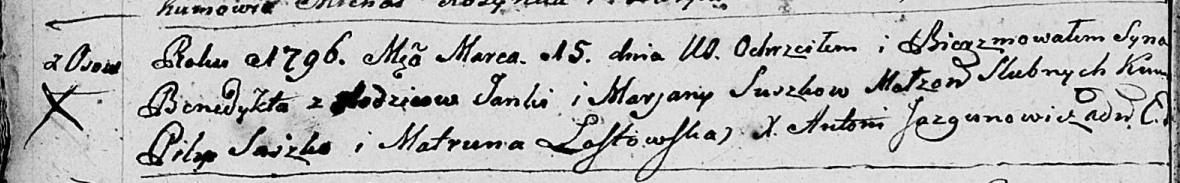 Kumowie Michał
z Osow Roku 1796. Mcą Marca. 15. dnia UO. Ochrzciłem i Bierzmowałem Syna
Benedykta z Rodzicow Janki i Marjany Suszkow Małżon Slubnych Kum.
Pilip Suszko i Matruna Lastowska, X. Antoni Jazgunowicz adm. C.